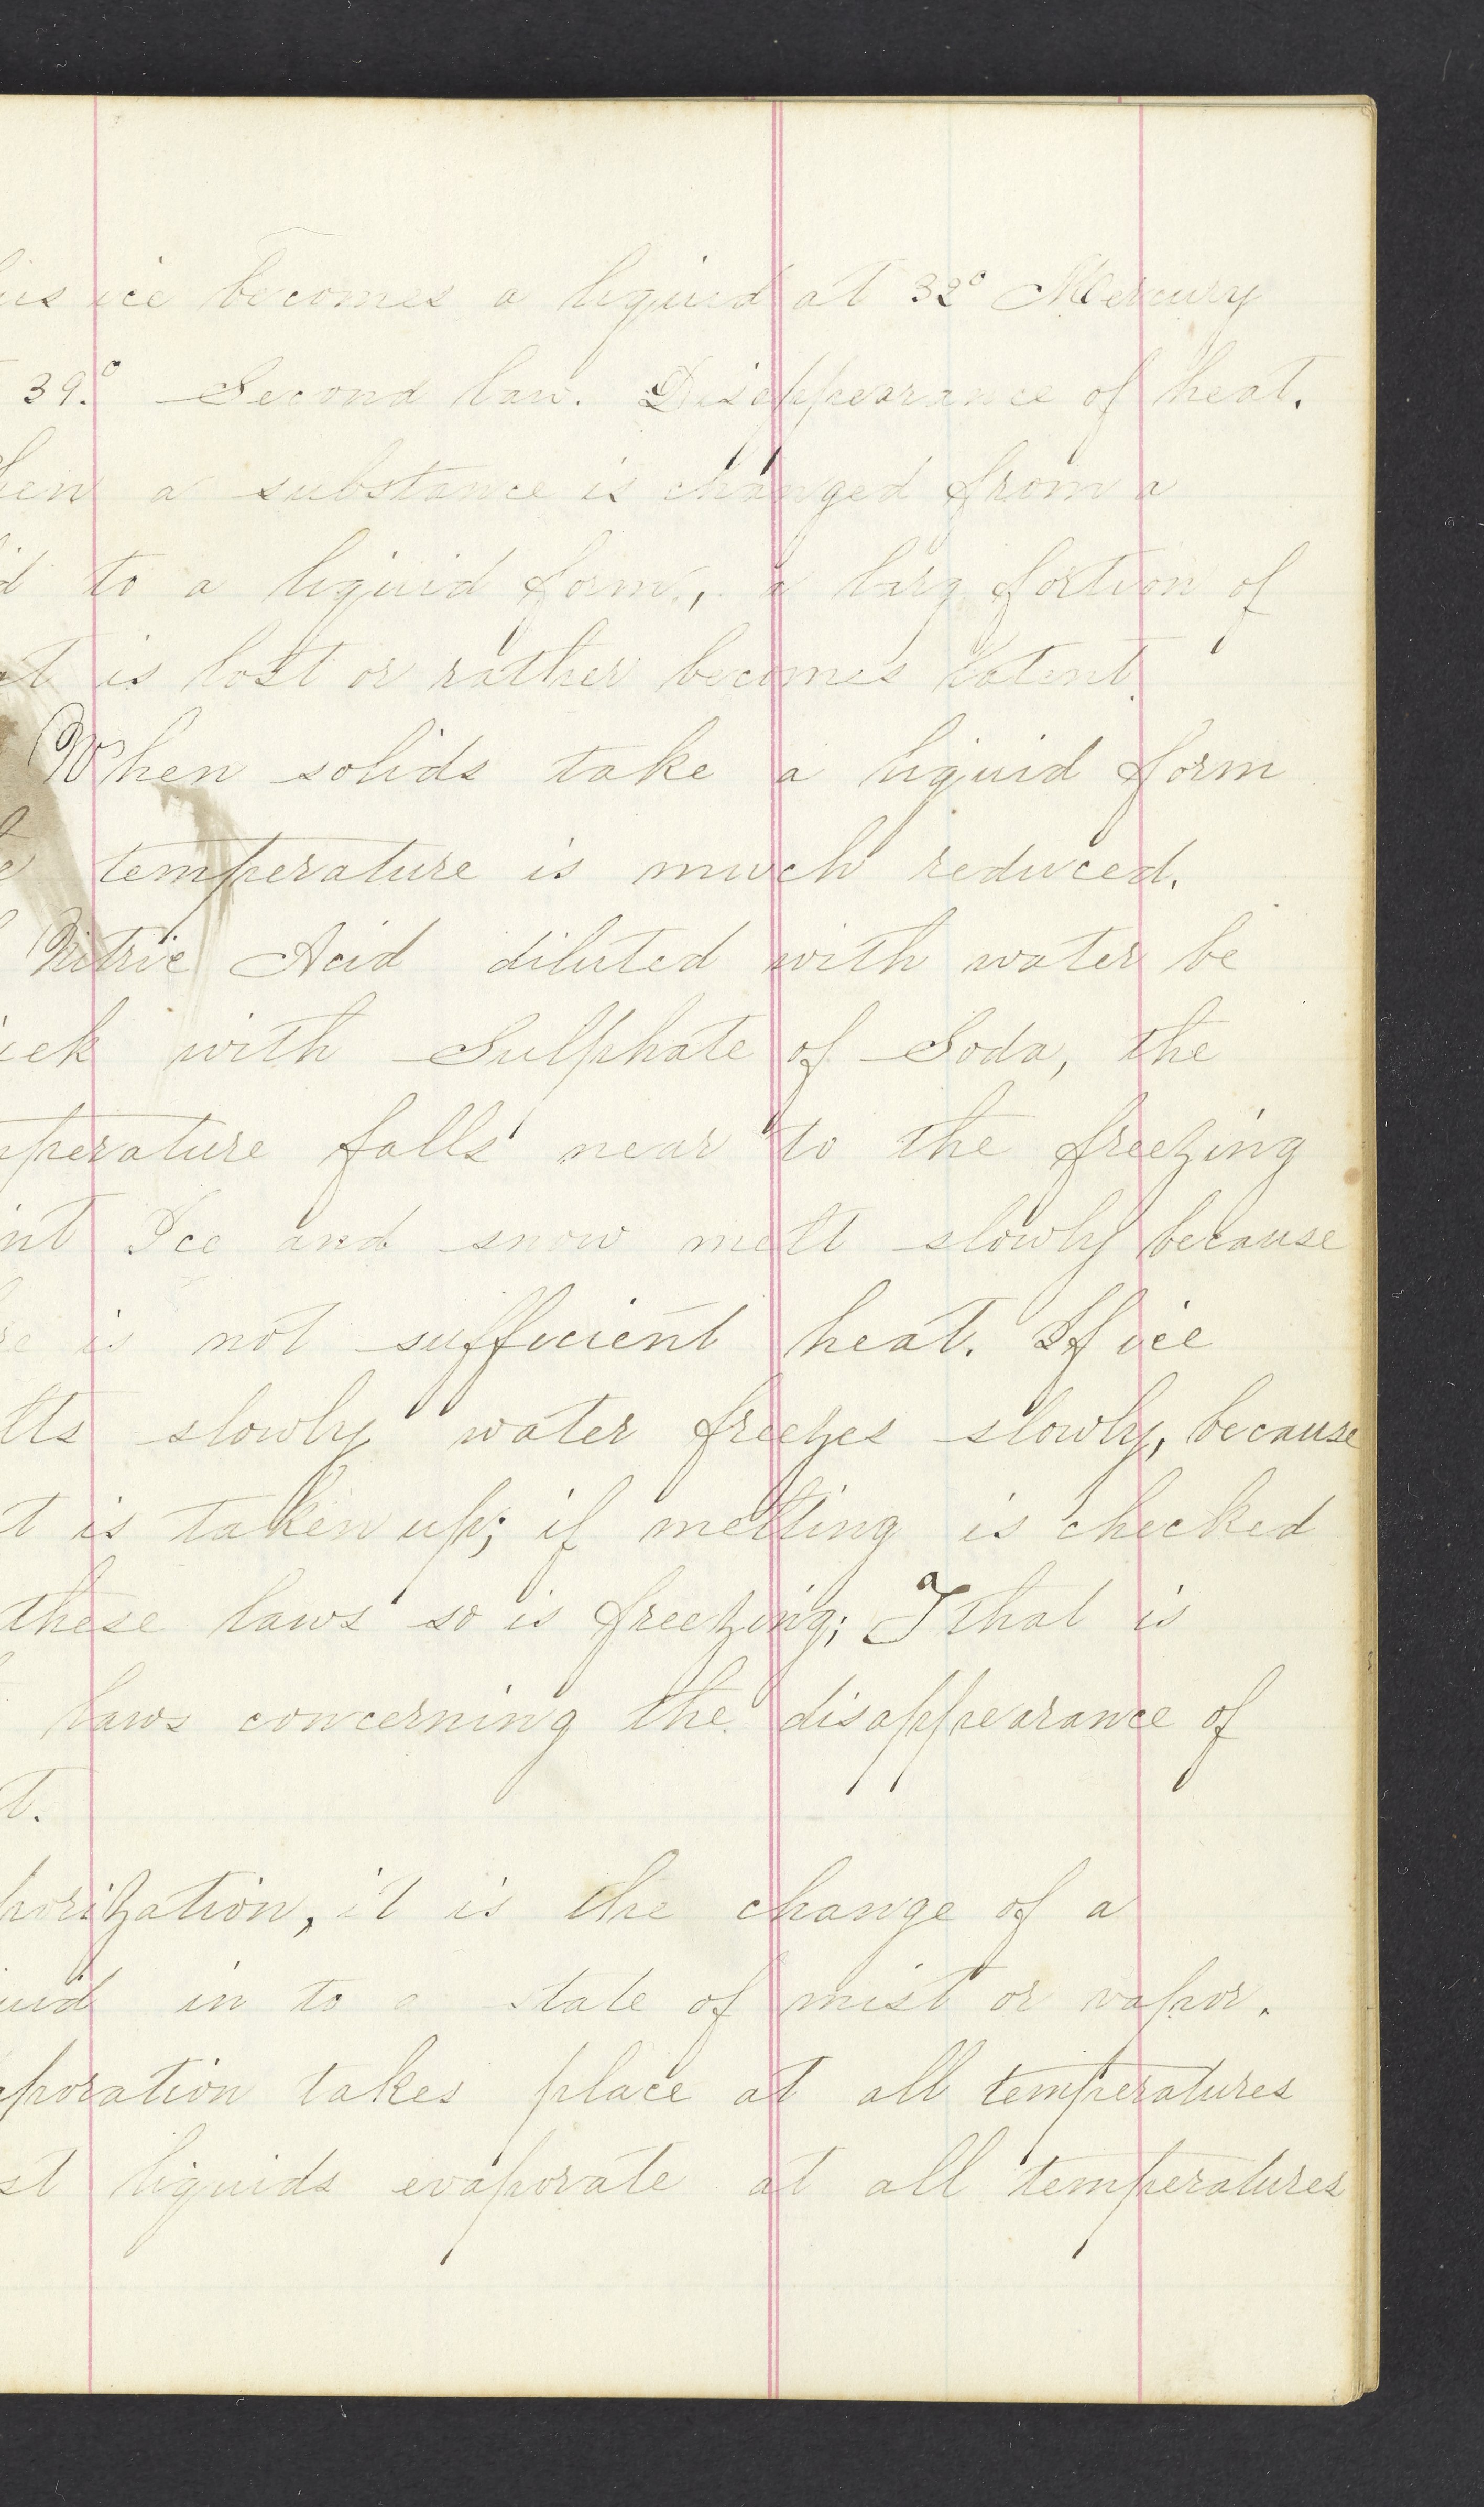 us ice becomes a liquid at 32° Mercury
39.° Second law. Disappearance of heat.
hen a substance is changed from a
d to a liquid form, a larg portion of
at is lost or rather becomes latent.
When solids take a liquid form
e temperature is much reduced.
Nitric Acid diluted with water be
ick with Sulphate of Soda, the
perature falls near to the freezing
nt Ice and snow melt slowly because
re is not sufficient heat. If ice
lts slowly water freezes slowly, because
t is taken up; if melting is checked
these laws so is freezing; That is
laws concerning the disappearance of
t.
porization, it is the change of a
uid in to a state of mist or vapor.
aporation takes place at all temperatures
st liquids evaporate at all temperatures